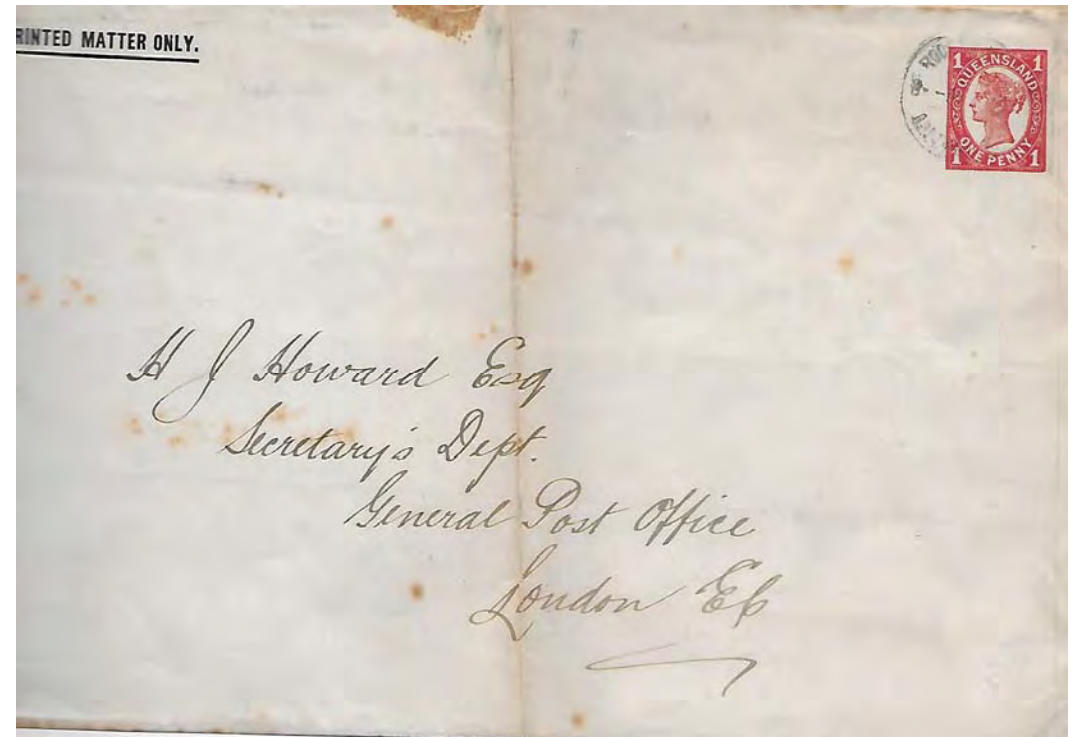 RINTED MATTER ONLY.
1 QUEENSLAND 1
1 ONE PENNY 1
H J Howard Esq
Secretary's Dept.
General Post Office
London EC